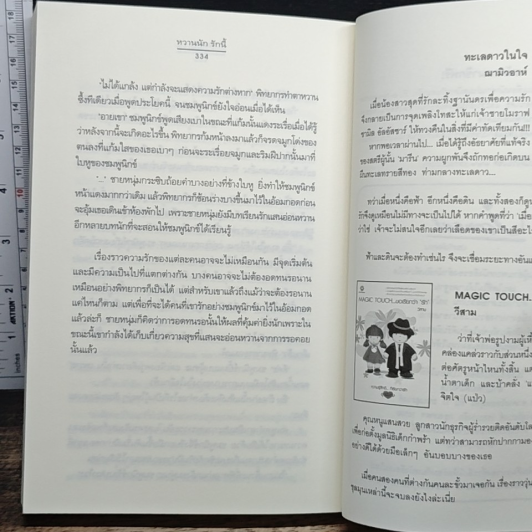 หวานนัก รักนี้
334
"ไม่ได้แกล้ง แต่กำลังจะแสดงความรักต่างหาก" พิทยากรทำตาหวาน
ซึ้งทีเดียวเมื่อพูดประโยคนี้ จนชมพูนิกข์ยังใจอ่อนเมื่อได้เห็น
"อายเขา" ชมพูนิกข์พูดเสียงเบาในขณะที่แก้มนั้นแดงระเรื่อเมื่อได้รู้
ว่าหลังจากนี้จะเกิดอะไรขึ้น พิทยากรก้มหน้าลงมาแล้วก็จรดจมูกโด่งของ
ตนลงที่แก้มใสของเธอเบาๆ ก่อนจะระเรื่อยจมูกและริมฝีปากนั้นมาที่
ใบหูของชมพูนิกข์
"..." ชายหนุ่มกระซิบถ้อยคำบางอย่างที่ข้างใบหู ยิ่งทำให้ชมพูนิกข์
หน้าแดงมากกว่าเดิม แล้วพิทยากรก็ช้อนร่างบางขึ้นมาไว้ในอ้อมกอดก่อน
จะอุ้มเธอเดินเข้าห้องพักไป เพราะชายหนุ่มยังมีบทเรียนรักแสนอ่อนหวาน
อีกหลายบทนักที่จะสอนให้ชมพูนิกข์ได้เรียนรู้
เรื่องราวความรักของแต่ละคนอาจจะไม่เหมือนกัน มีจุดเริ่มต้น
และมีความเป็นไปที่แตกต่างกัน บางคนอาจจะไม่ต้องอดทนรอนาน
เหมือนอย่างพิทยากรก็เป็นได้ แต่สำหรับเขาแล้วถึงแม้ว่าจะต้องรอนาน
แค่ไหนก็ตาม แต่เพื่อที่จะได้คนที่เขารักอย่างชมพูนิกข์มาไว้ในอ้อมกอด
แล้วล่ะก็ ชายหนุ่มก็คิดว่าการอดทนรอนั้นให้ผลที่คุ้มค่ายิ่งนักเพราะใน
ขณะนี้เขากำลังได้เก็บเกี่ยวความสุขที่แสนจะอ่อนหวานจากการรอคอย
นั้นแล้ว
ทะเลดาวในใจ
ฌามิวอาห์
เมื่อน้องสาวสุดที่รักละทิ้งฐานันดรเพื่อความรัก
จึงกลายเป็นการจุดเพลิงโทสะให้แก่เจ้าชายโมราฟ
ให้ทวงคืนในสิ่งที่มีค่าทัดเทียมกัน!!!
หากพอเวลาผ่านไป... เมื่อได้รู้ถึงอัธยาศัยที่แท้จริง
ของสตรีผู้นั้น 'มารีน' ความผูกพันจึงถักทอก่อเกิดบน
ผืนทะเลทรายสีทอง ท่ามกลางทะเลดาว...
ทว่าเมื่อหนึ่งคือฟ้า อีกหนึ่งคือดิน และทั้งสองก็ดู
รักจึงดูเหมือนไม่มีทางจะเป็นไปได้ หากคำพูดที่ว่า 'เมื่อ
ว่าใช่ เจ้าจะไม่สนใจอีกเลยว่าเลือดของเขาเป็นสีอะไร
ฟ้าและดินจะต้องทำเช่นไร จึงจะเชื่อมระยะทางอัน
MAGIC TOUCH...
วีสาม
ว่าที่เจ้าพ่อรูปงามผู้
คล่องแคล่วราวกับส่วนหนึ่ง
ต่อศัตรูหน้าไหนทั้งสิ้น แต่
น้ำตาเด็ก และบ้าคลั่ง
จิตใจ (แป่ว)
คุณหนูแสนสวย ลูกสาวนักธุรกิจผู้ร่ำรวยติดอันดับโล
เพื่อก่อตั้งมูลนิธิเด็กกำพร้า แต่ทว่าสามารถหักปากกามอ
อย่างดีได้ด้วยมือเล็กๆ อันบอบบางของเธอ
เมื่อคนสองคนที่ต่างกันคนละขั้วมาเจอกัน เรื่องราววุ่น
ชุลมุนเหล่านี้จะจบลงยังไงล่ะเนี่ย